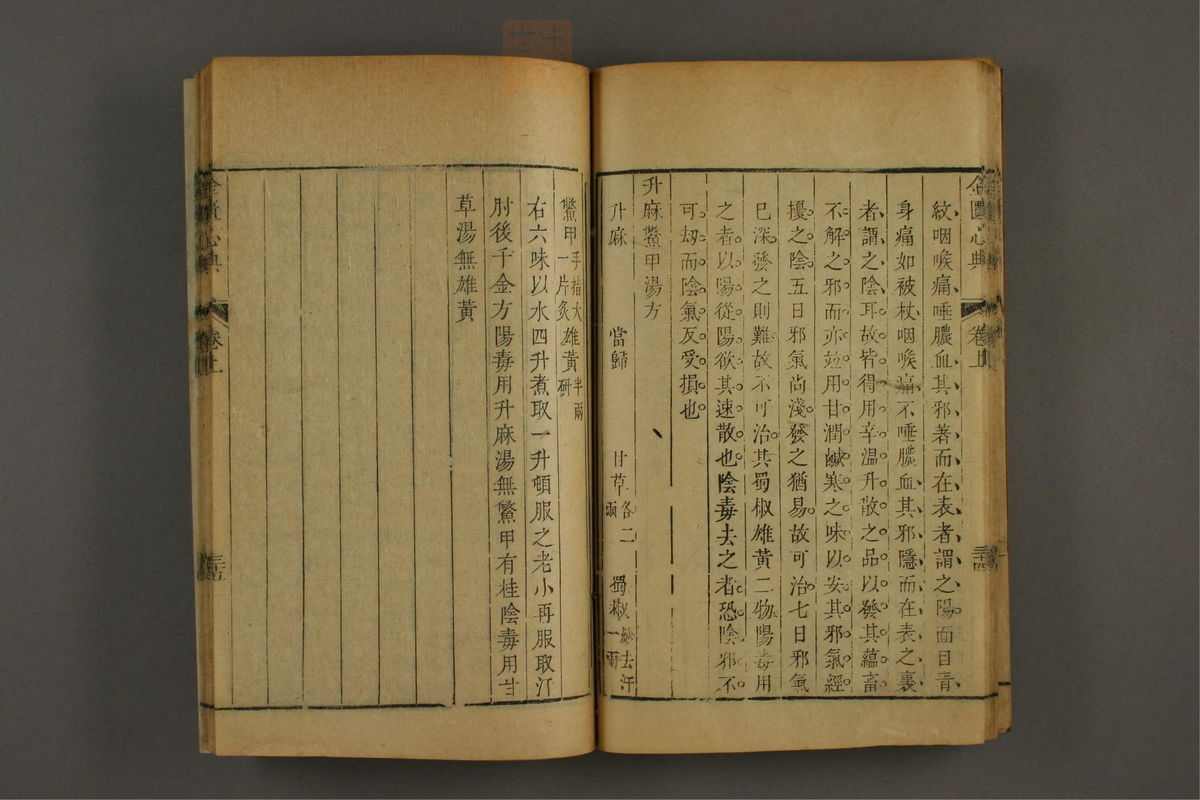 金匱心典
卷上
三十四
紋咽喉痛唾膿血其邪著而在表者謂之陽面目青
身痛如被杖咽喉痛不唾膿血其邪隱而在表之裏
者謂之陰耳故皆得用辛溫升散之品以發其蘊畜
不解之邪而亦並用甘潤鹹寒之味以安其邪氣經
擾之陰五日邪氣尚淺發之猶易故可治七日邪氣
已深發之則難故不可治其蜀椒雄黃二物陽毒用
之者以陽從陽欲其速散也陰毒去之者恐陰邪不
可刼而陰氣反受損也
升麻鱉甲湯方
升麻 當歸 甘草各二兩 蜀椒炒去汗一兩
鱉甲手指大一片炙 雄黃半兩研
右六味以水四升煮取一升頓服之老小再服取汗
肘後千金方陽毒用升麻湯無鱉甲有桂陰毒用甘
草湯無雄黃
金匱心典
卷上
三十五